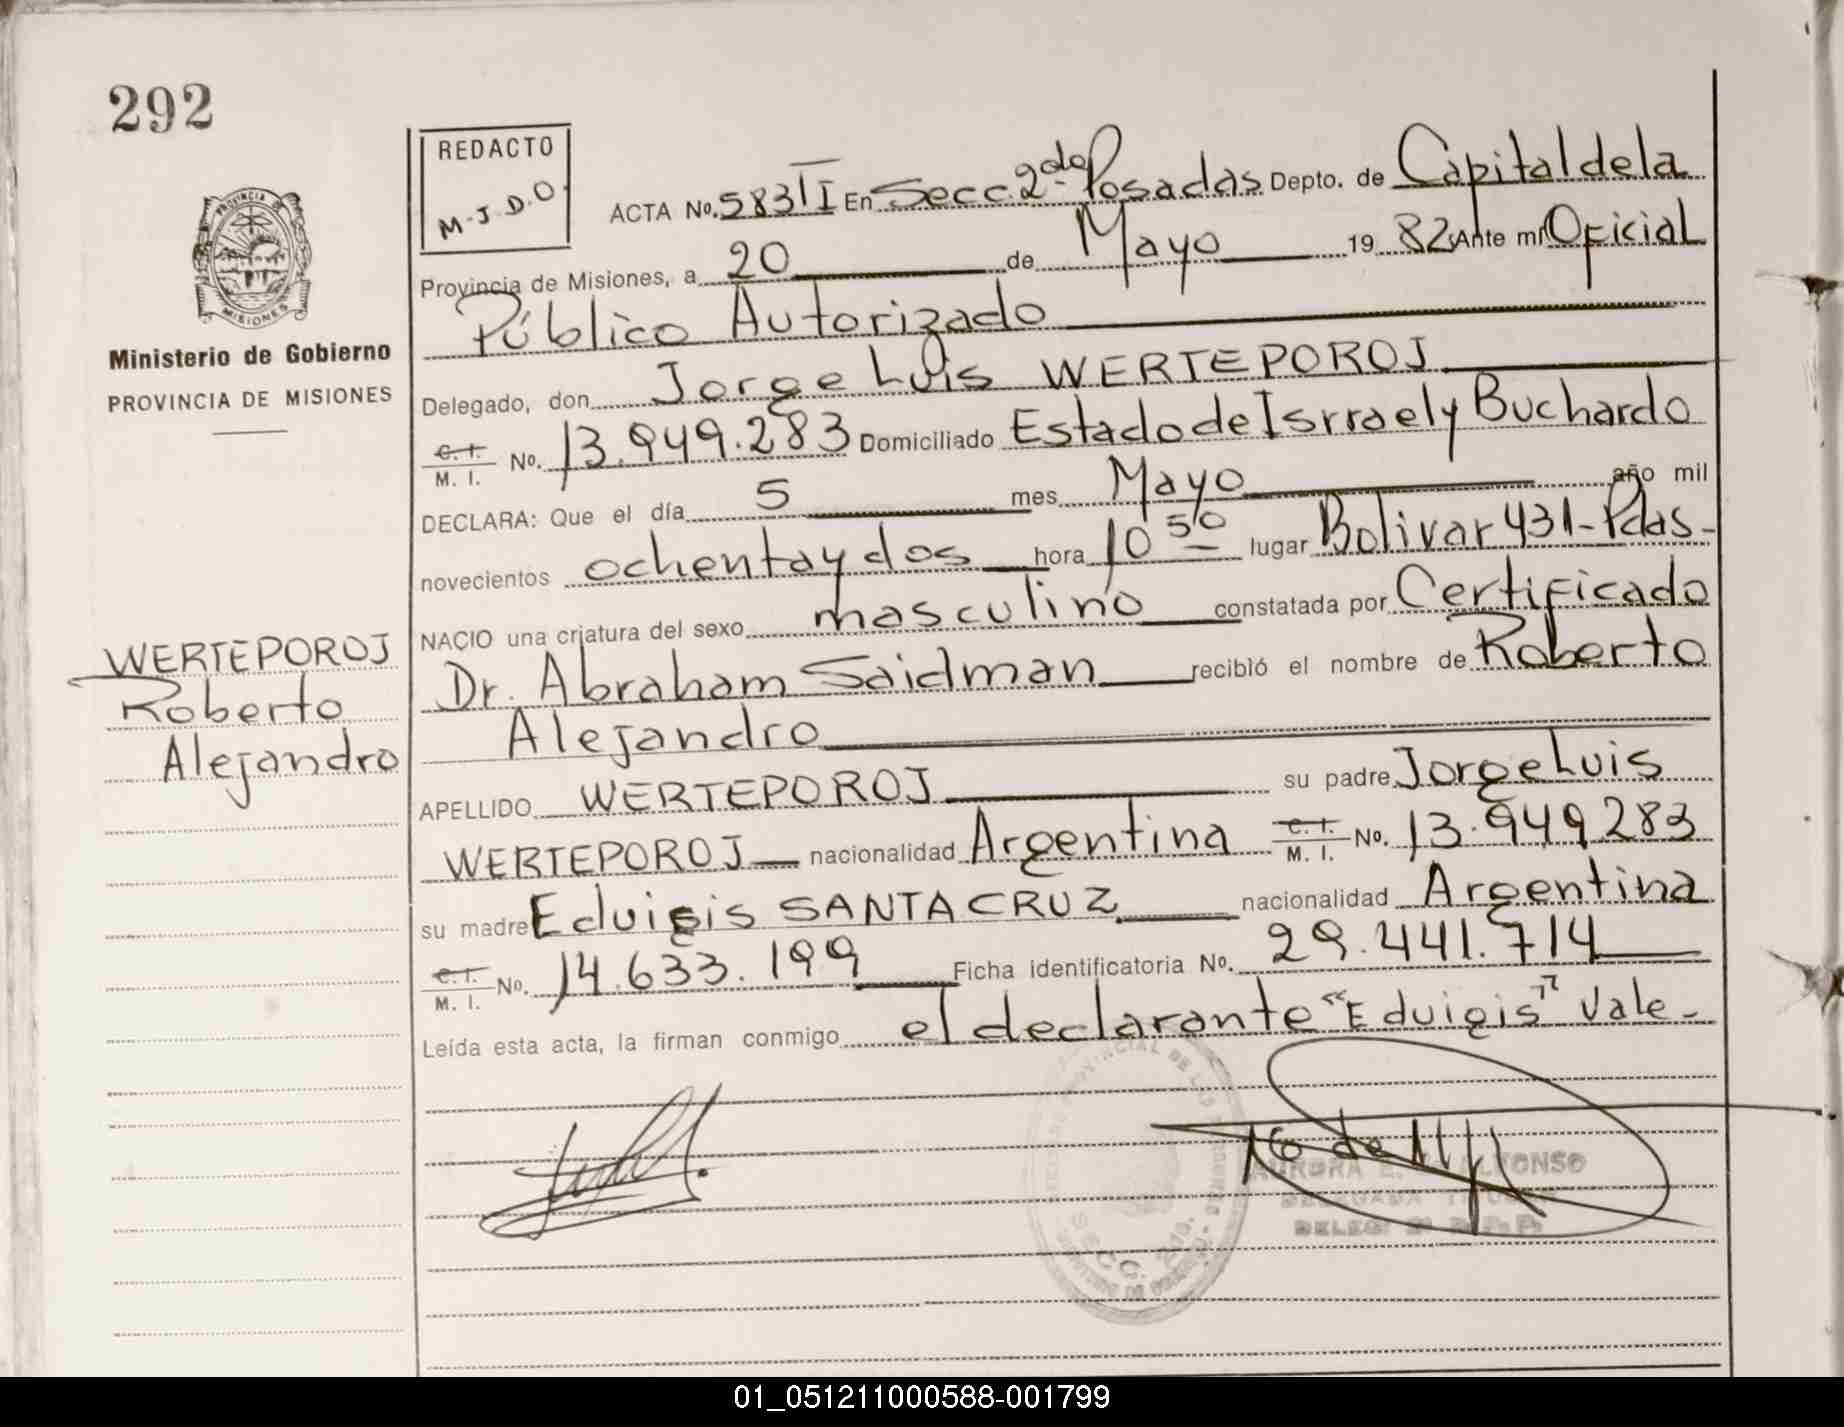 292
REDACTO
M.J.D.O.
PROVINCIA DE
MISIONES
Ministerio de Gobierno
PROVINCIA DE MISIONES
WERTEPOROJ
Roberto
Alejandro
ACTA No. 583 TI En Secc. 2da. Posadas Depto. de Capital de la
Provincia de Misiones, a 20 de Mayo 19 82 Ante mí Oficial
Público Autorizado
Delegado, don Jorge Luis WERTEPOROJ
C.I. M.I. No. 13.949.283 Domiciliado Estado de Isrrael y Buchardo
DECLARA: Que el día 5 mes Mayo año mil
novecientos ochenta y dos hora 10 50 lugar Bolivar 431-Pdas-
NACIO una criatura del sexo masculino constatada por Certificado
Dr. Abraham Saidman recibió el nombre de Roberto
Alejandro
APELLIDO WERTEPOROJ su padre Jorge Luis
WERTEPOROJ nacionalidad Argentina C.I. M.I. No. 13.949.283
su madre Eduigis SANTA CRUZ nacionalidad Argentina
C.I. M.I. No. 14.633.199 Ficha identificatoria No. 29.441.714
Leída esta acta, la firman conmigo el declarante "Eduigis" Vale-
AURORA E. ALFONSO
DELEGADA TITULAR
01_051211000588-001799